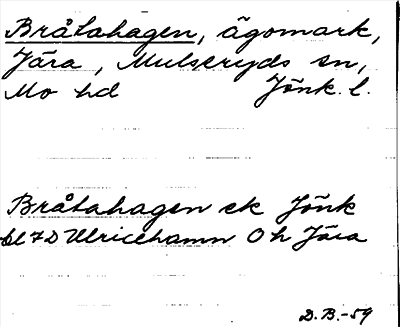 Bråtahagen, ägomark,
Jära, Mulseryds sn,
Mo hd Jönk. l.
Bråtahagen ek Jönk
bl 7D Ulricehamn Oh Jära
D.B.-59